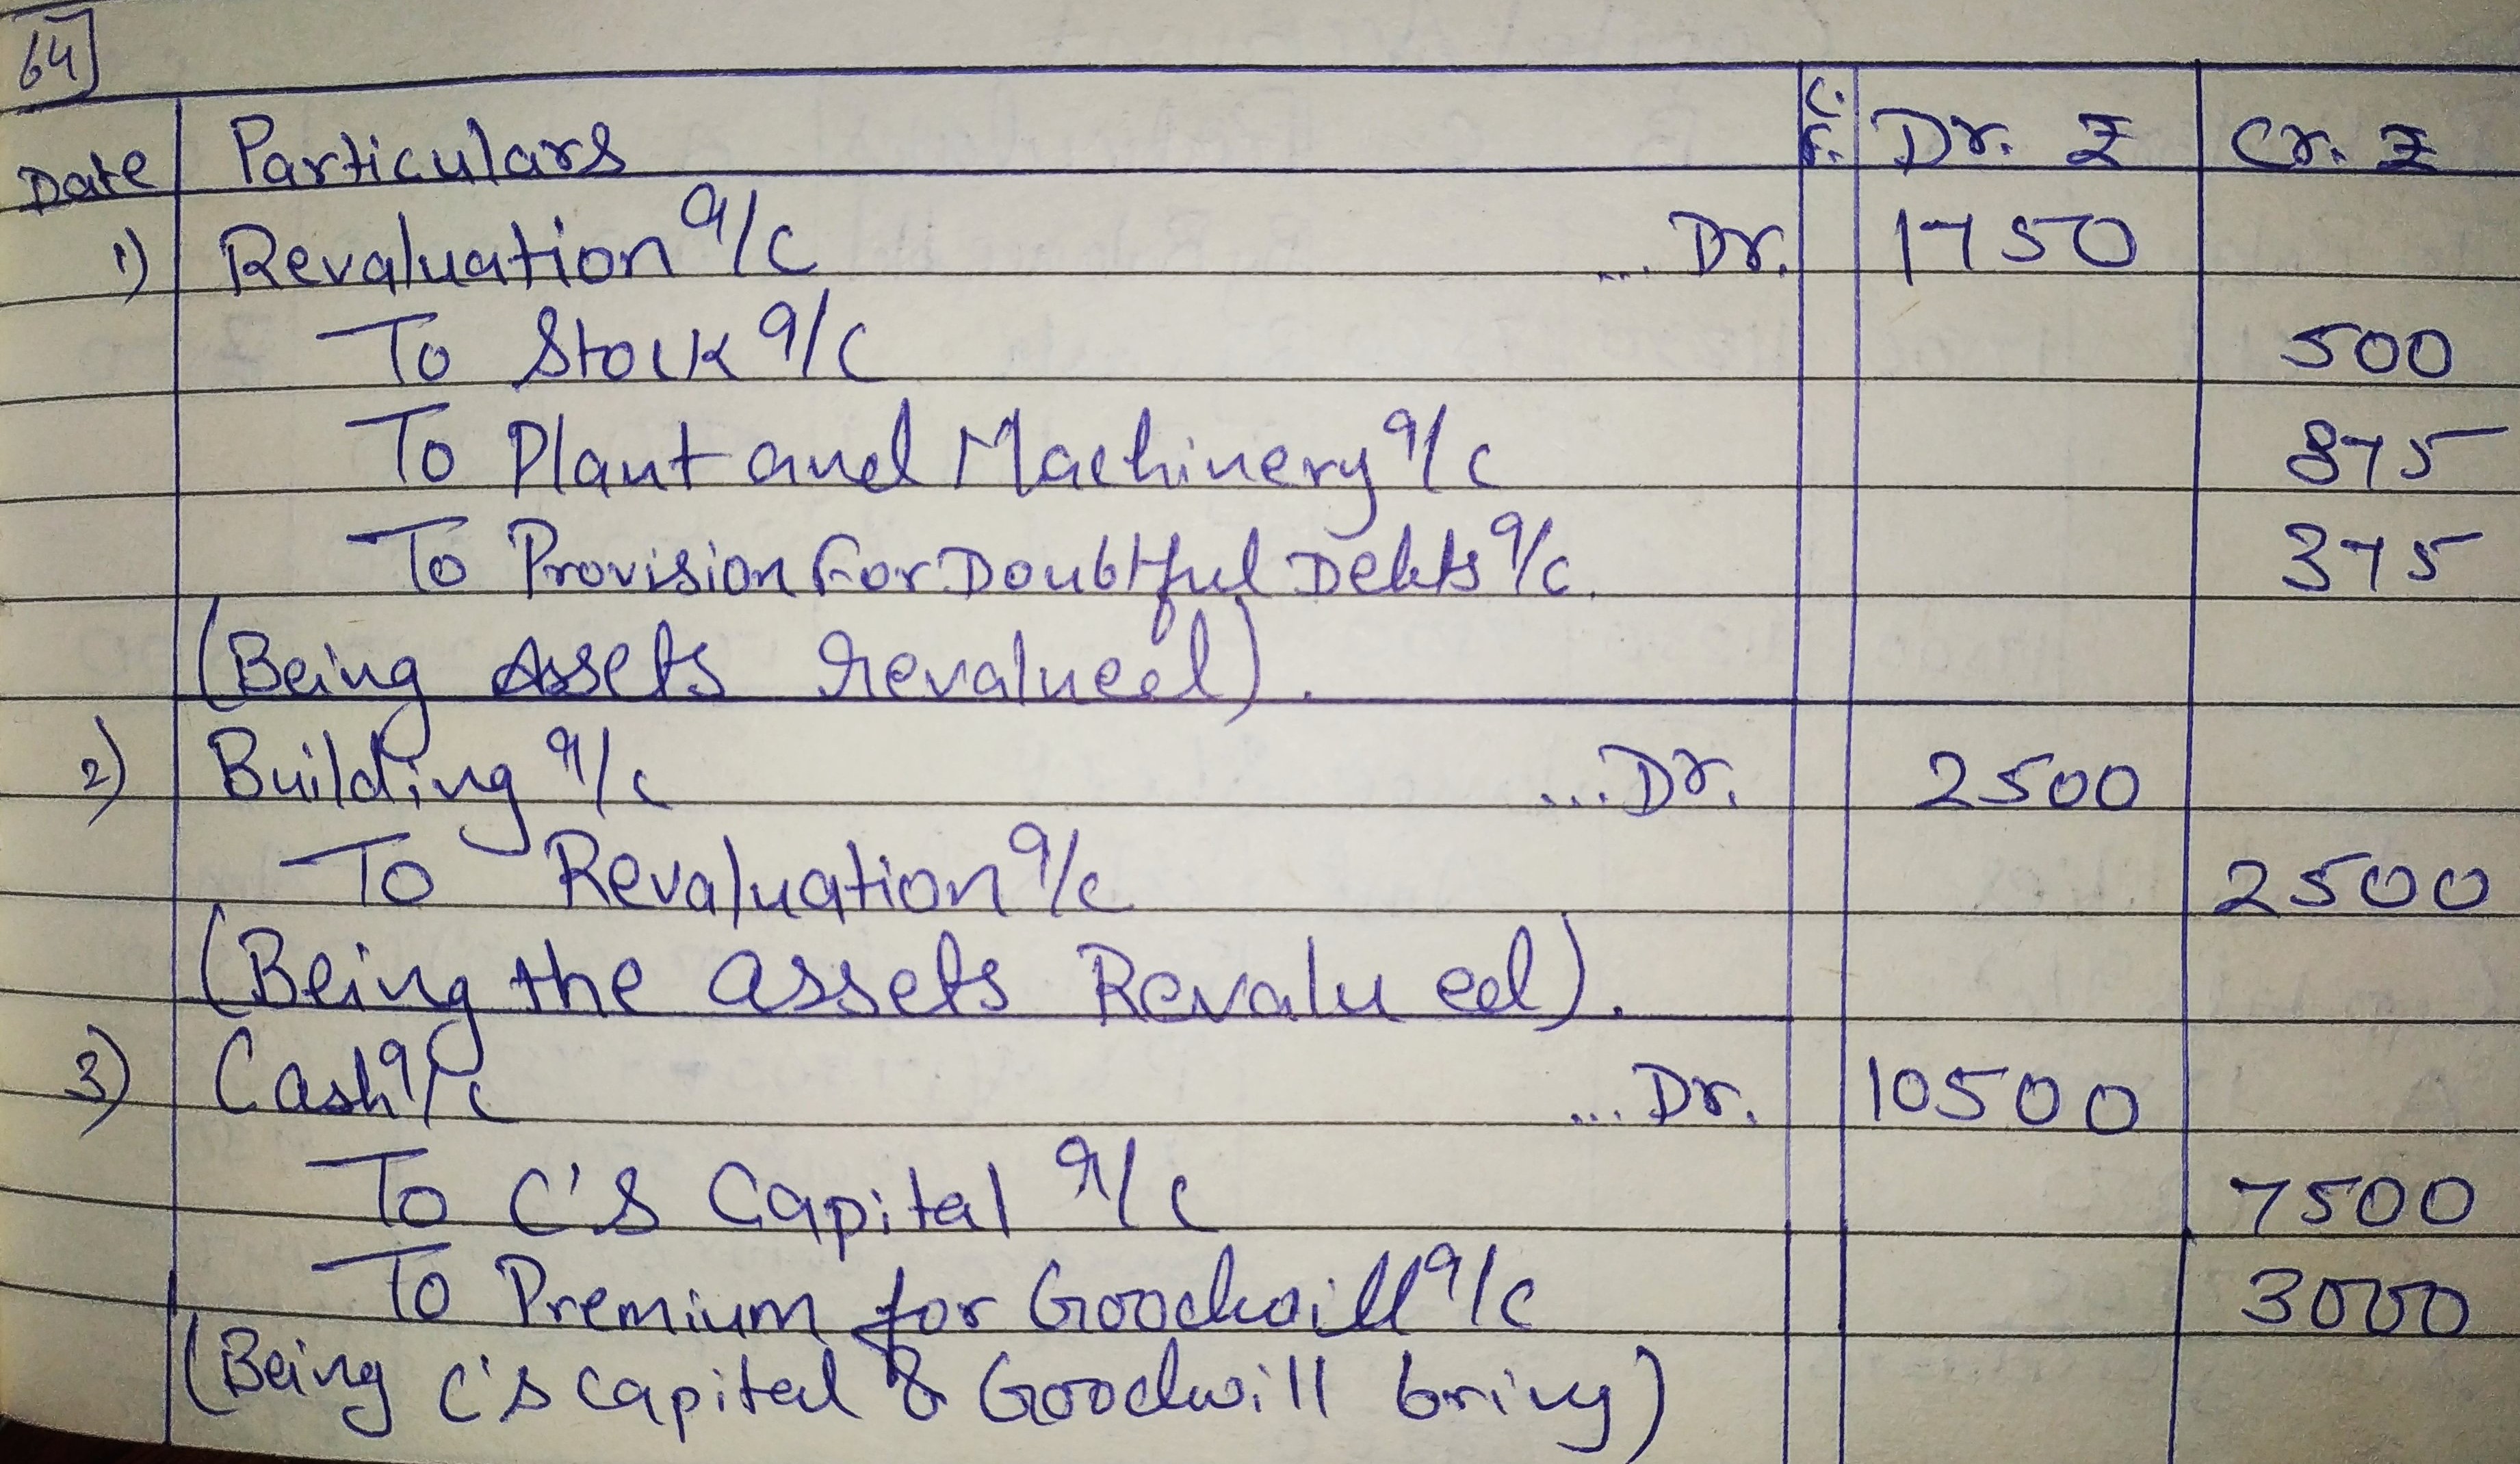 64
Date Particulars L.F. Dr. ₹ Cr. ₹
1) Revaluation a/c ... Dr. 1750
To Stock a/c 500
To Plant and Machinery a/c 875
To Provision For Doubtful Debts a/c. 375
(Being Assets revalued).
2) Building a/c ... Dr. 2500
To Revaluation a/c 2500
(Being the assets Revalued).
3) Cash a/c ... Dr. 10500
To C's Capital a/c 7500
To Premium for Goodwill a/c 3000
(Being C's capital & Goodwill bring)